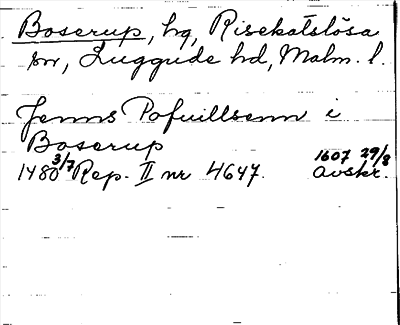 Boserup, hg, Risekatslösa
sn, Luggude hd, Malm. l.
Jenns Pofuillsenn i
Boserup
1480 3/7 Rep. II nr 4647. 1607 29/8
avskr.